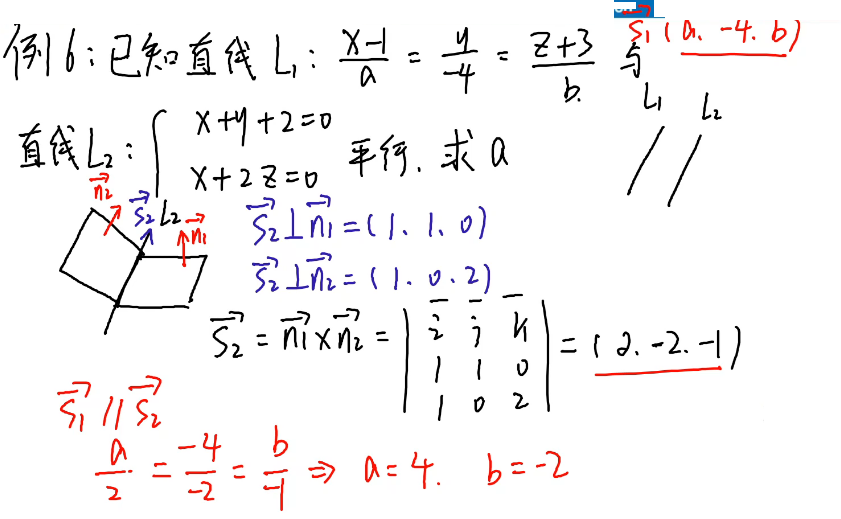 例6:已知直线 L₁: (x-1)/a = y/-4 = (z+3)/b 与
s₁→(a. -4. b)
L₁ L₂
直线L₂: { x+y+2=0
x+2z=0 平行. 求a
n₂→ s₂→ L₂ n₁→
s₂→⊥n₁→=(1. 1. 0)
s₂→⊥n₂→=(1. 0. 2)
s₂→ = n₁→×n₂→ = | i j k | = (2. -2. -1)
| 1 1 0 |
| 1 0 2 |
s₁→ // s₂→
a/2 = -4/-2 = b/-1 ⇒ a=4. b=-2